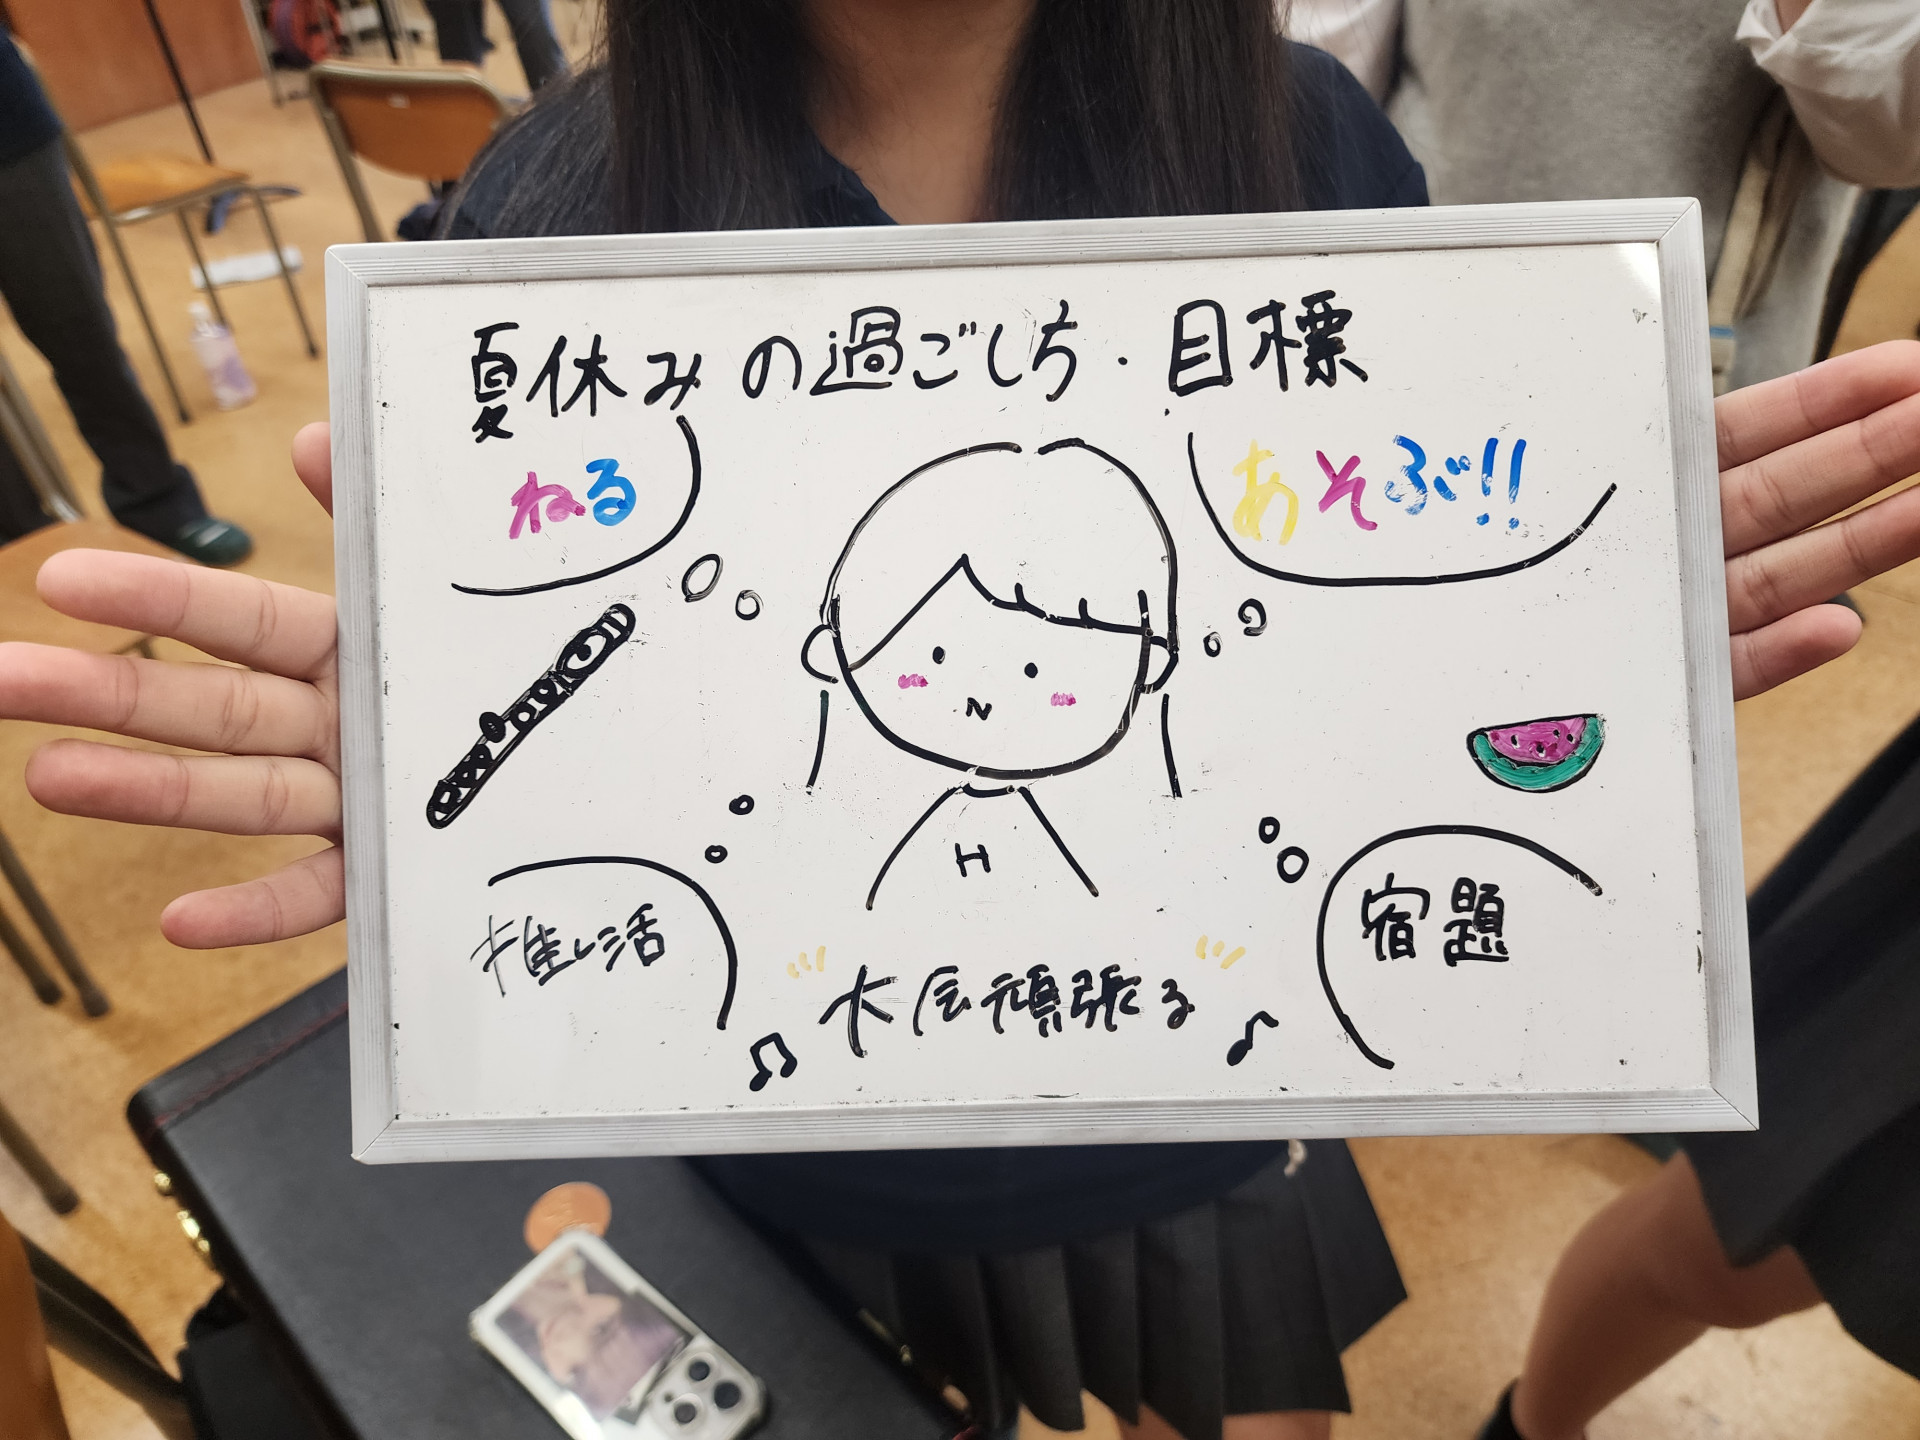 夏休みの過ごし方・目標
ねる
あそぶ!!
H
推し活
宿題
大会頑張る